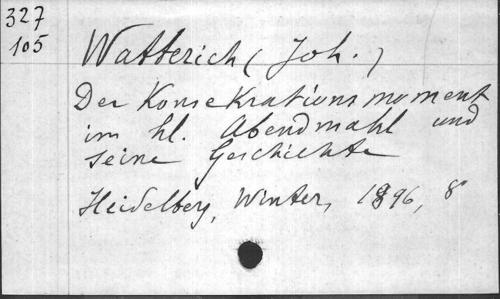 327
105
Watterich (Joh.)
Der Konsekrationsmoment
im hl. Abendmahl und
seine Geschichte
Heidelberg, Winter, 1896, 8°